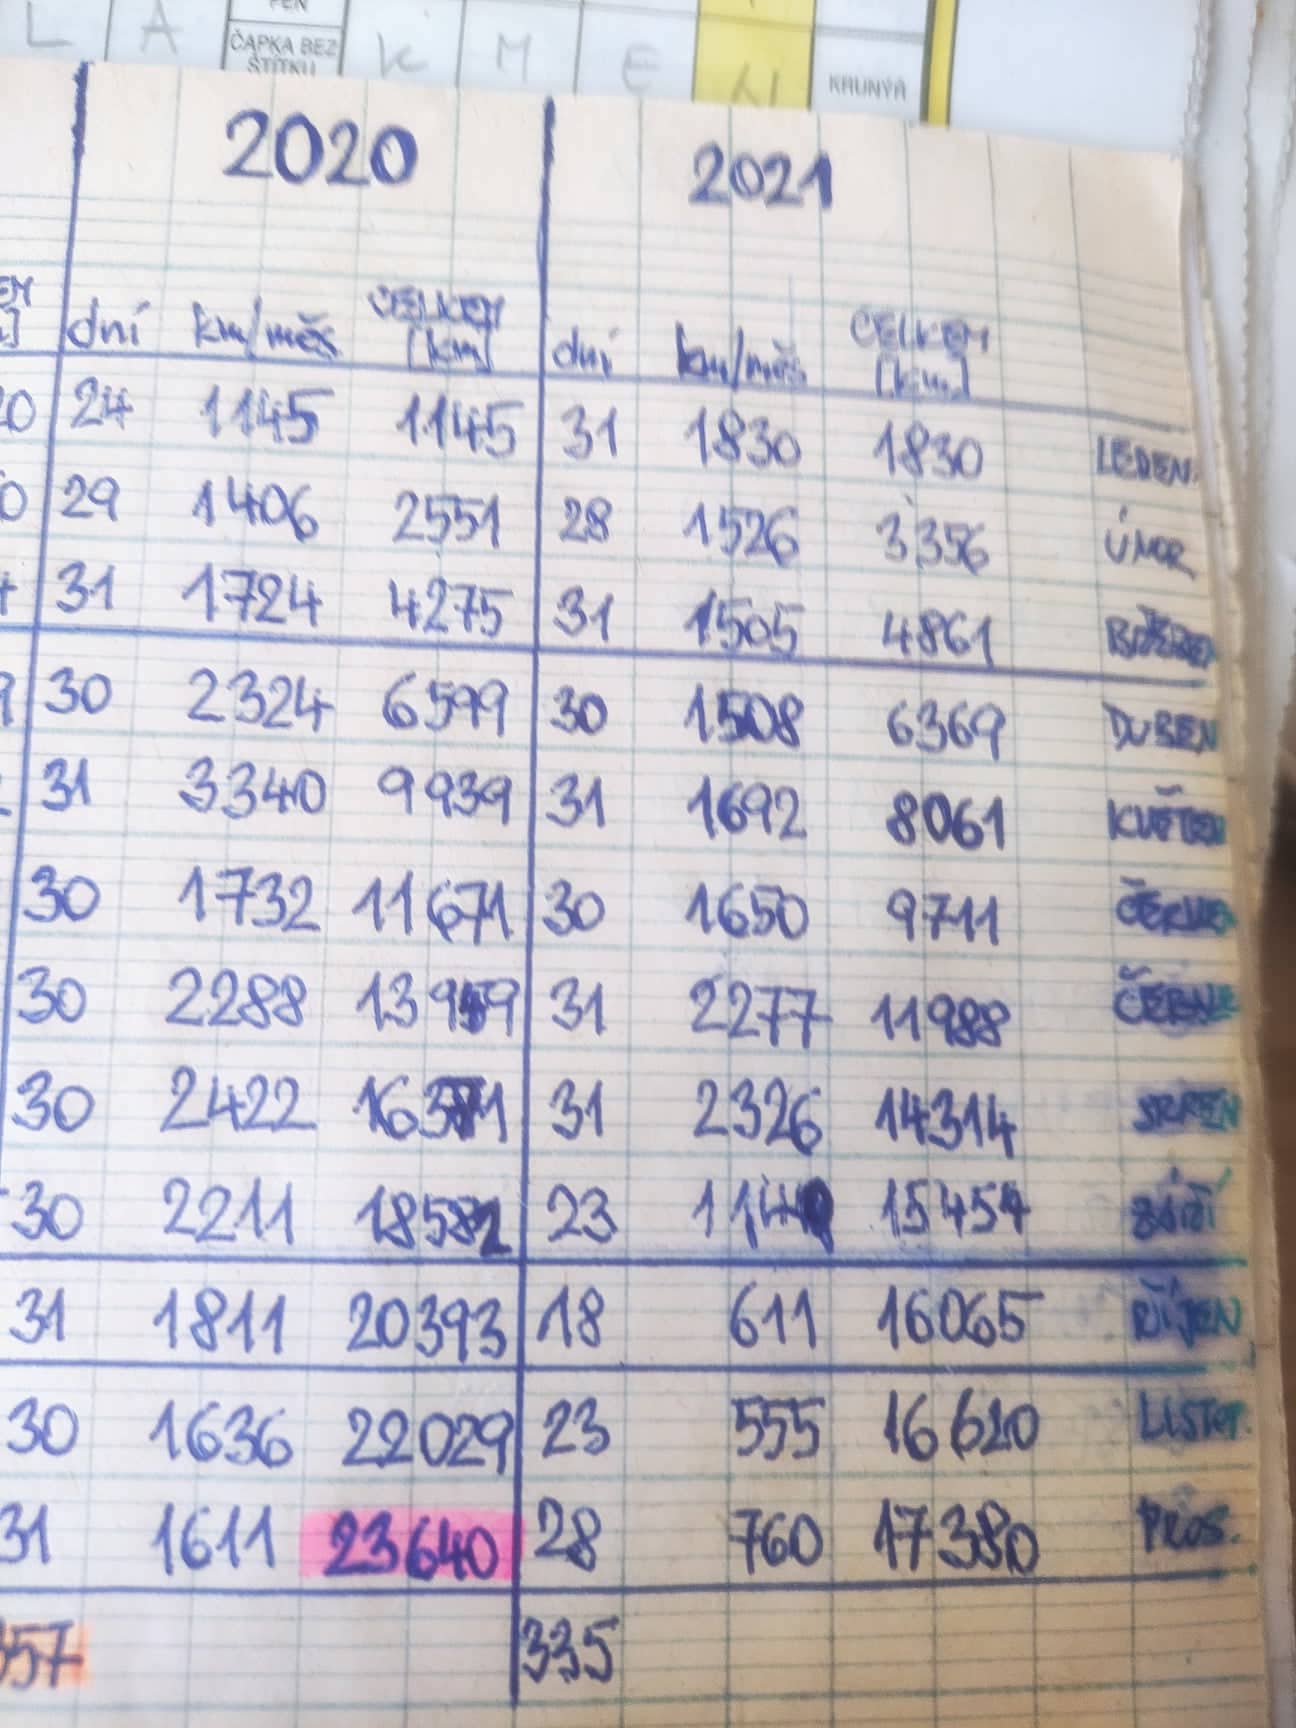 L A ČAPKA BEZ ŠTÍTKU K M E N KRUNÝŘ
2020 2021
dní km/měs CELKEM [km] dní km/měs CELKEM [km]
24 1145 1145 31 1830 1830 LEDEN
29 1406 2551 28 1526 3356 ÚNOR
31 1724 4275 31 1505 4861 BŘEZEN
30 2324 6599 30 1508 6369 DUBEN
31 3340 9939 31 1692 8061 KVĚTEN
30 1732 11671 30 1650 9711 ČERVEN
30 2288 13959 31 2277 11988
30 2422 16371 31 2326 14314 SRPEN
30 2211 18582 23 1140 15454 ZÁŘÍ
31 1811 20393 18 611 16065 ŘÍJEN
30 1636 22029 23 555 16620 LISTOP.
31 1611 23640 28 760 17380 PROS.
357 335